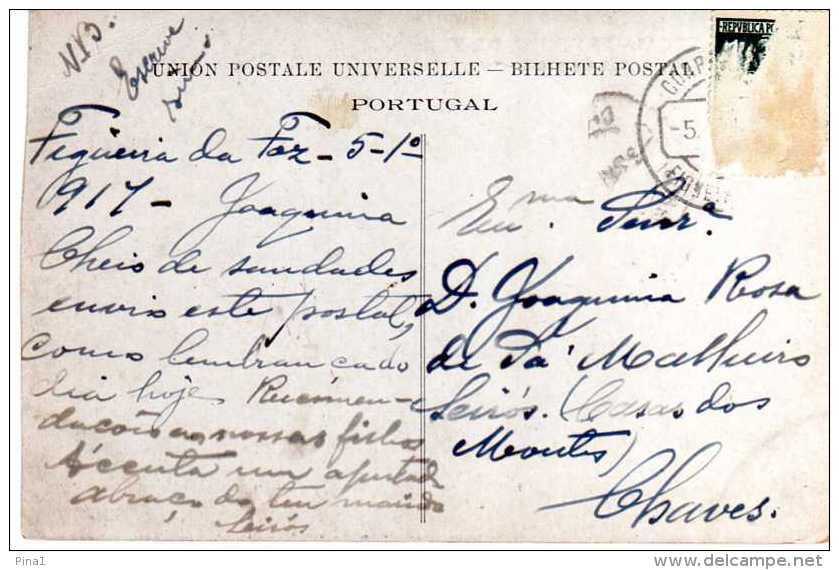 N.B.
Escreve
UNION POSTALE UNIVERSELLE — BILHETE POSTAL
PORTUGAL
REPVBLICA PO
-5.
Figueira da Foz - 5-1º
917 - Joaquina
Cheio de saudades
envio este postal,
como lembrança do
dia hoje Recomen-
dações aos nossos filhos
Acceita um apertado
abraço do teu marido
Leirós
Exma. Senrª.
D. Joaquina Rosa
de Sá Malheiro
Leirós. (Casas dos
Montes)
Chaves.
Pina1
www.delcampe.net